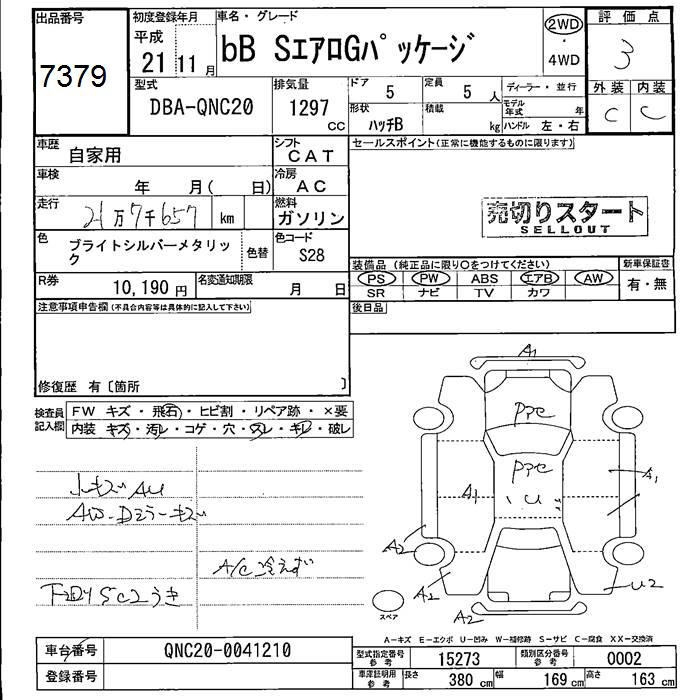 出品番号
7379
初度登録年月
平成
21 11月
車名・グレード
bB SエアロGパッケージ
2WD
・
4WD
評価点
3
外装 内装
C C
型式
DBA-QNC20
排気量
1297
CC
ドア
5
定員
5 人
形状
ハッチB
積載
kg
ディーラー・並行
モデル年式 年
ハンドル 左・右
車歴
自家用
シフト
CAT
車検
年 月( 日)
冷房
AC
走行
21万7千657 km
燃料
ガソリン
色
ブライトシルバーメタリック
色替
色コード
S28
R券
10,190円
名変通知期限
月 日
セールスポイント(正常に機能するものに限ります)
売切りスタート
SELLOUT
装備品(純正品に限り○をつけてください)
PS PW ABS エアB AW
SR ナビ TV カワ
新車保証書
有・無
後日品
注意事項申告欄(不具合内容等は具体的に記入して下さい)
修復歴 有〔箇所 〕
検査員記入欄
FW キズ・飛石・ヒビ割・リペア跡・×要
内装 キズ・汚レ・コゲ・穴・スレ・キレ・破レ
小キズ AU
AW-Dミラーキズ
A/C冷えず
A1
PPC
PPC
A1
U
A1
A2
A2
A2
U2
スペア
A-キズ E-エクボ U-凹み W-補修跡 S-サビ C-腐食 XX-交換済
車台番号
QNC20-0041210
登録番号
型式指定番号 参考
15273
類別区分番号 参考
0002
車庫証明用 参考
長さ 380cm 幅 169cm 高さ 163cm